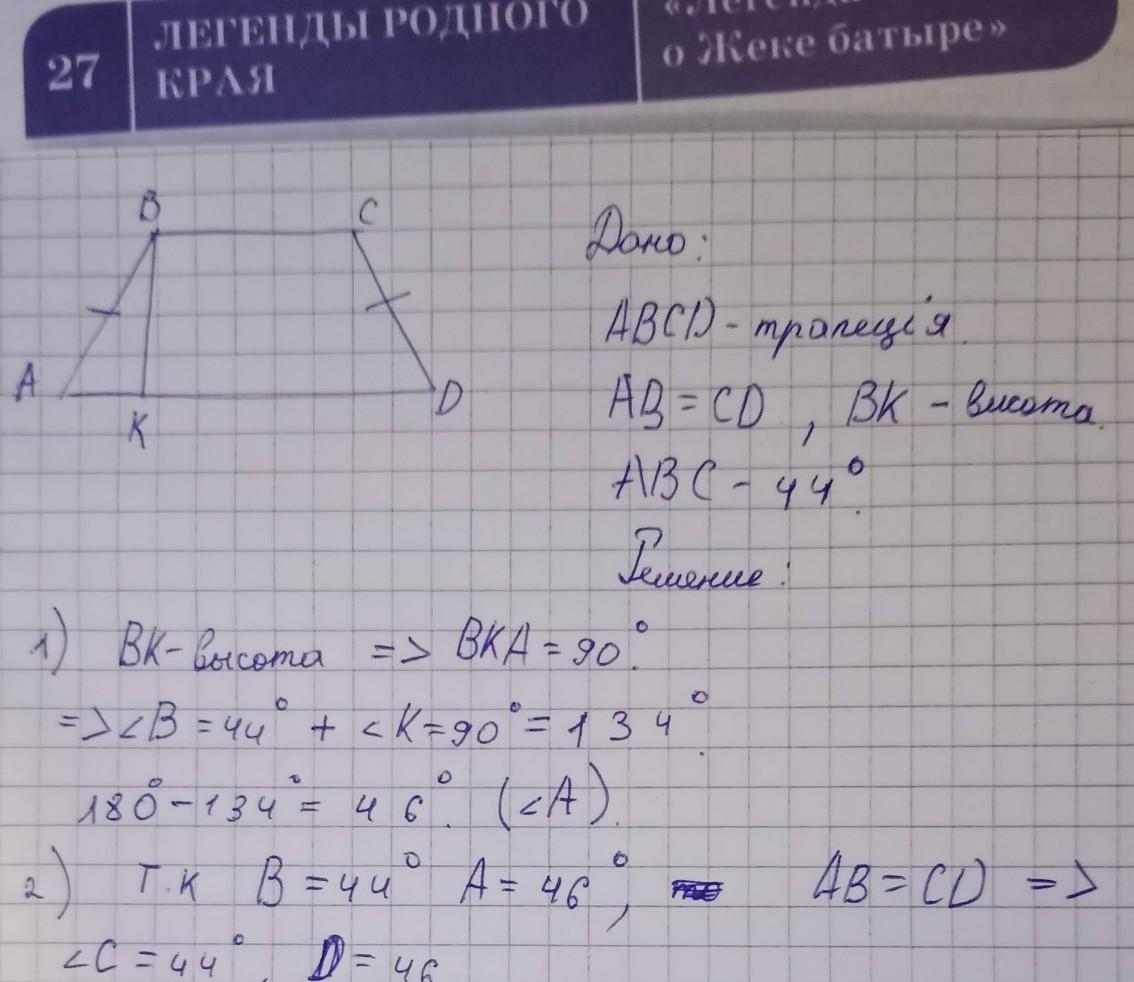 27
ЛЕГЕНДЫ РОДНОГО
КРАЯ
«Легенда
о Жеке батыре»
B C
A K D
Дано:
ABCD - трапеція.
AB = CD , BK - висота.
ABC - 44°.
Решение:
1) BK - высота => BKA = 90°.
=> <B = 44° + <K = 90° = 134°.
180° - 134° = 46°. (<A).
2) Т.к B = 44° A = 46°, AB = CD =>
<C = 44°. D = 46